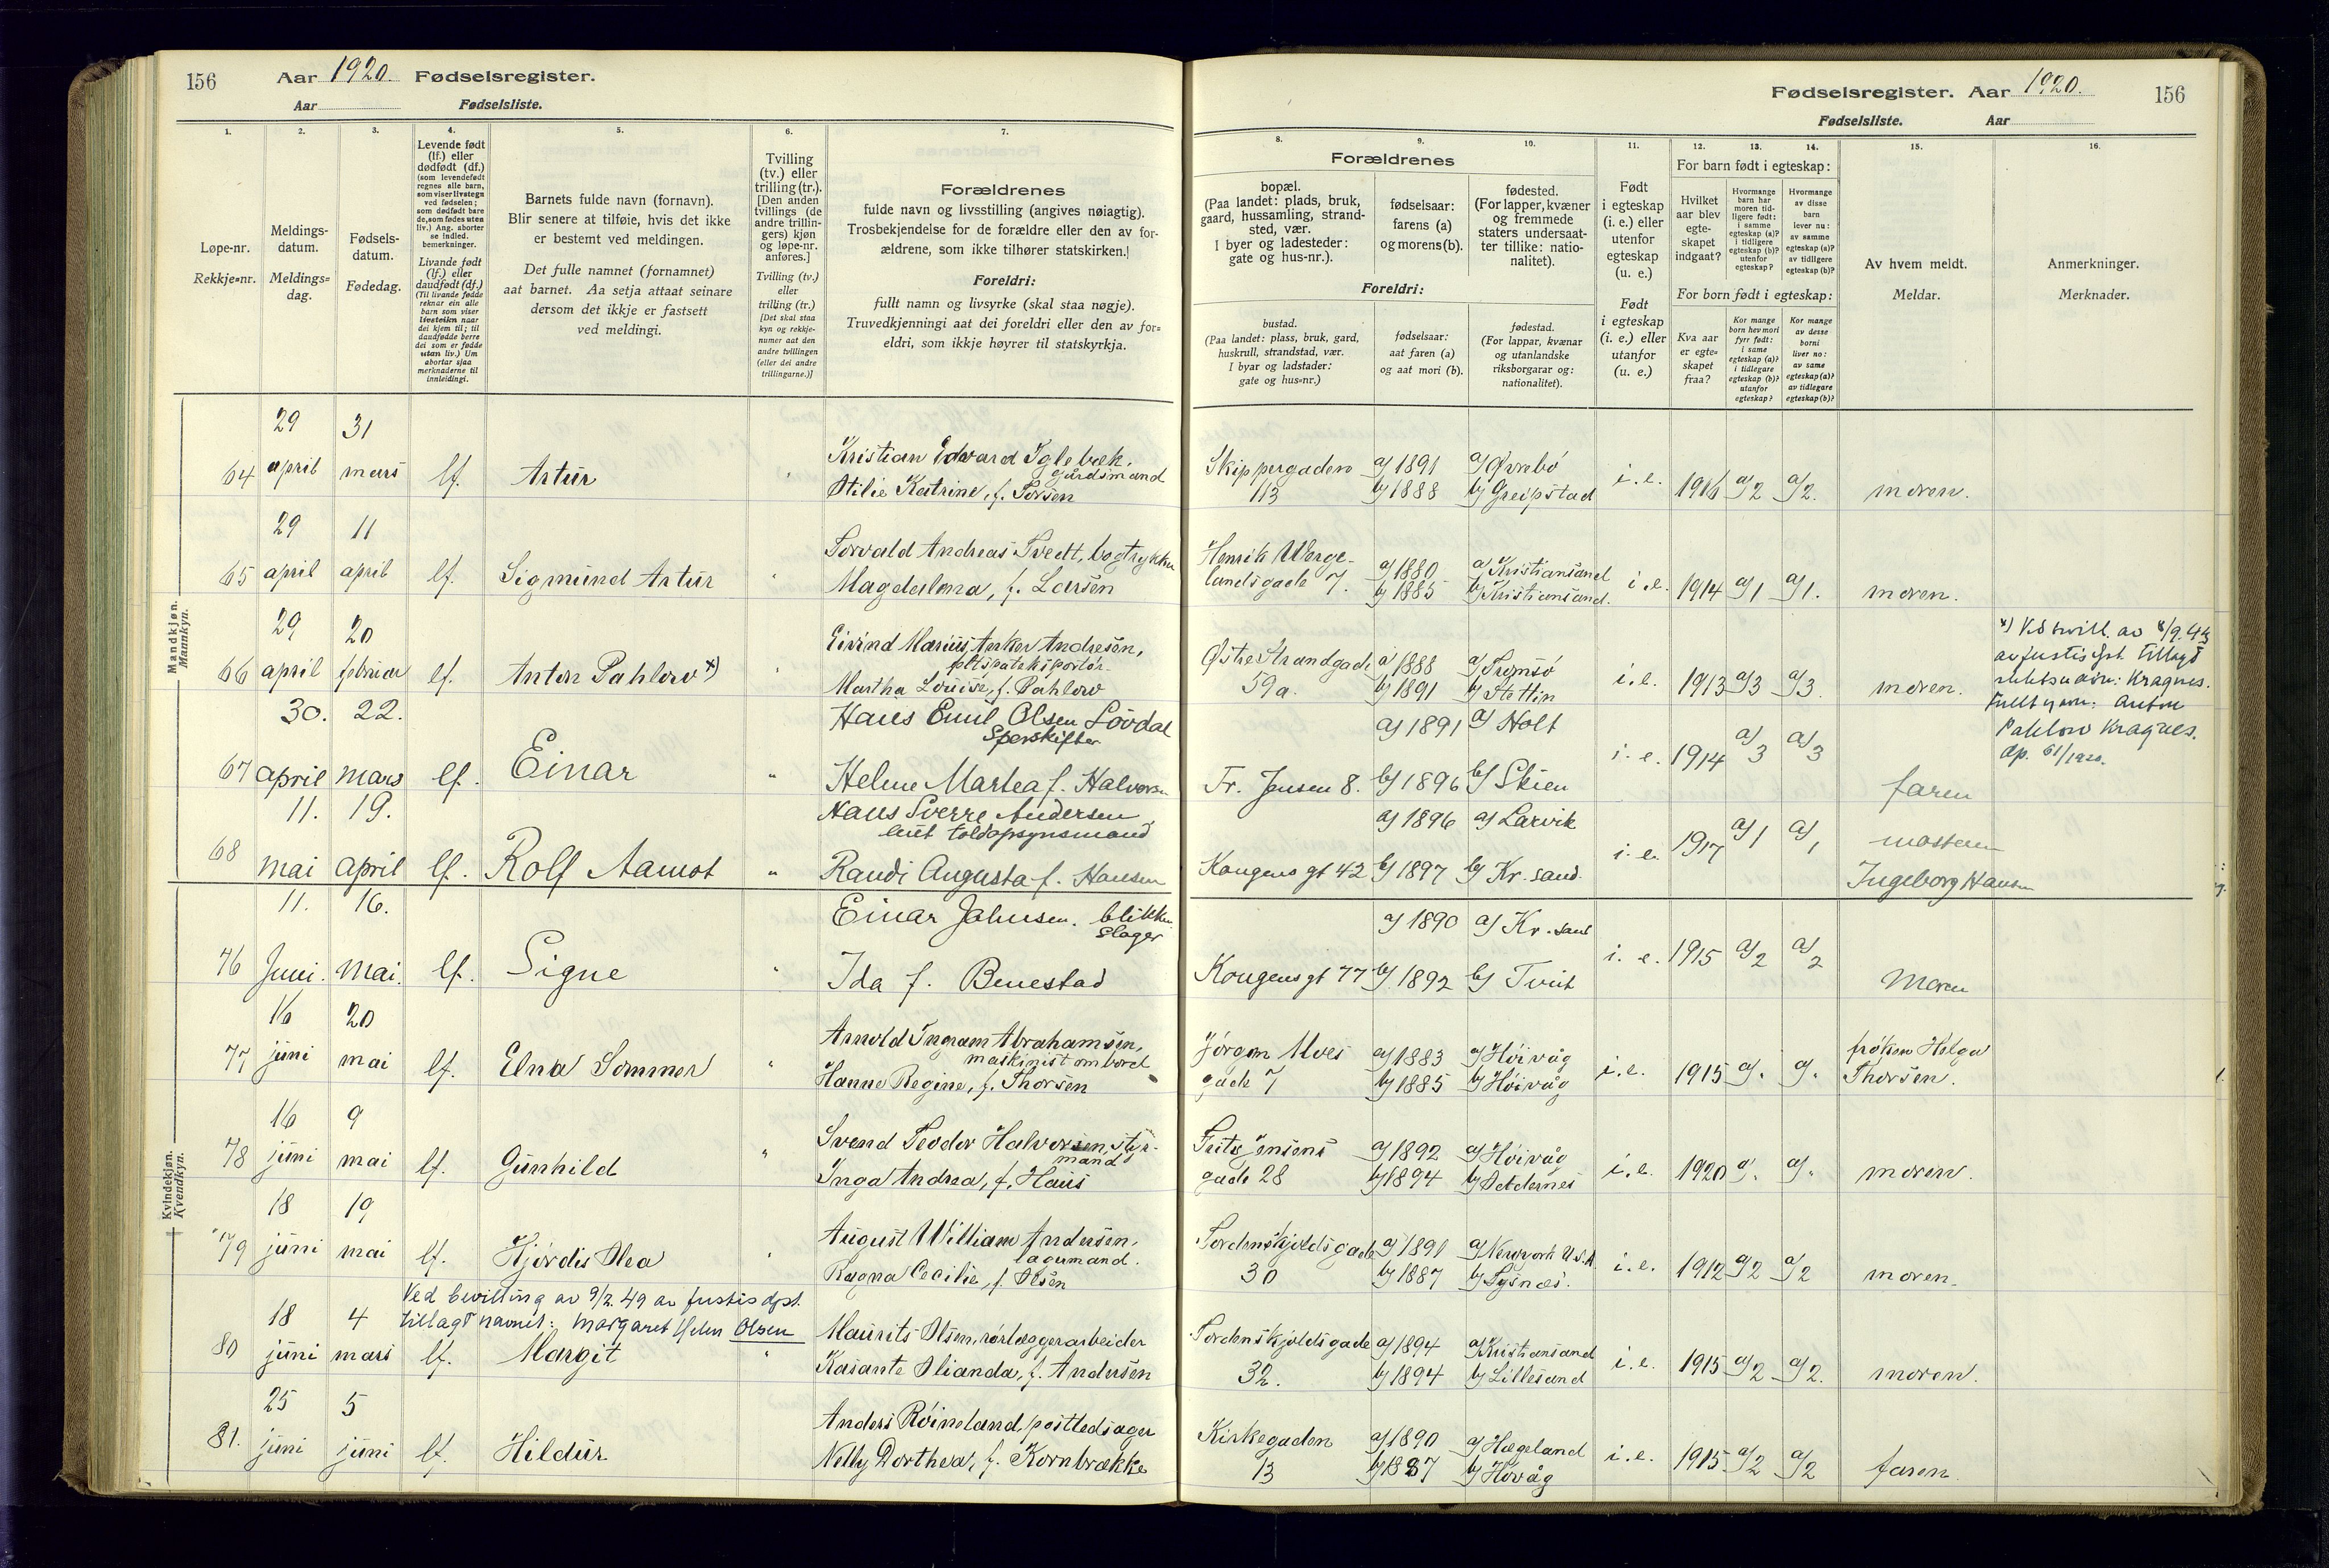 156 Aar 1920. Fødselsregister.
Aar Fødselsliste.
Fødselsregister. Aar 1920. 156
Fødselsliste. Aar
1. 2. 3. 4. 5. 6. 7.
Løpe-nr.
Rekkje=nr.
Meldings-
datum.
Meldings=
dag.
Fødsels-
datum.
Fødedag.
Levende født
(lf.) eller
dødfødt (df.)
(som levendefødt
regnes alle barn,
som viser livstegn
ved fødselen;
som dødfødt bare
de, som fødes uten
liv.) Ang. aborter
se indled.
bemerkninger.
Livande født
(lf.) eller
daudfødt (df.)
(Til livande fødde
reknar ein alle
barn som viser
livsteikn naar
dei kjem til; til
daudfødde berre
dei som er fødde
utan liv.) Um
abortar sjaa
merknaderne til
innleidingi.
Barnets fulde navn (fornavn).
Blir senere at tilføie, hvis det ikke
er bestemt ved meldingen.
Det fulle namnet (fornamnet)
aat barnet. Aa setja attaat seinare
dersom det ikkje er fastsett
ved meldingi.
Tvilling
(tv.) eller
trilling (tr.).
[Den anden
tvillings (de
andre trillin-
gers) kjøn
og løpe-nr.
anføres.]
Tvilling (tv.)
eller
trilling (tr.)
[Det skal staa
kyn og rekkje-
numer aat den
andre tvillingen
(eller dei andre
trillingarne.)]
Forældrenes
fulde navn og livsstilling (angives nøiagtig).
Trosbekjendelse for de forældre eller den av for-
ældrene, som ikke tilhører statskirken.|
Foreldri:
fullt namn og livsyrke (skal staa nøgje).
Truvedkjenningi aat dei foreldri eller den av for=
eldri, som ikkje høyrer til statskyrkja.
8. 9. 10. 11. 12. 13. 14. 15. 16.
Forældrenes
bopæl.
(Paa landet: plads, bruk,
gaard, hussamling, strand-
sted, vær.
I byer og ladesteder:
gate og hus-nr.).
fødselsaar:
farens (a)
og morens (b).
fødested.
(For lapper, kvæner
og fremmede
staters undersaat-
ter tillike: natio-
nalitet).
Foreldri:
bustad.
(Paa landet: plass, bruk, gard,
huskrull, strandstad, vær.
I byar og ladstader:
gate og hus=nr.)
fødselsaar:
aat faren (a)
og aat mori (b).
fødestad.
(For lappar, kvænar
og utanlandske
riksborgarar og:
nationalitet).
Født
i egteskap
(i. e.) eller
utenfor
egteskap
(u. e.)
Født
i egteskap
(i. e.) eller
utanfor
(u. e.)
For barn født i egteskap:
Hvilket
aar blev
egte-
skapet
indgaat?
Hvormange
barn har
moren tid-
ligere født:
i samme
egteskap (a)?
i tidligere
egteskap (b)?
utenfor
egteskap?
Hvormange
av disse
barn
lever nu:
av samme
egteskap (a)?
av tidligere
egteskap (b)?
For born født i egteskap:
Kva aar
er egte=
skapet
fraa?
Kor mange
born hev mori
fyrr født:
i same
egteskap (a)?
i tidlegare
egteskap (b)?
utanfor
egteskap?
Kor mange
av desse
borni
liver no:
av same
egteskap (a)?
av tidlegare
egteskap (b)?
Av hvem meldt.
Meldar.
Anmerkninger.
Merknader.
Mandkjøn.
Mannkyn.
29 31
64 april mars lf. Artur
Kristian Edvard Iglebæk,
gårdsmand
Otilie Katrine, f. Torsen
Skippergaden
113
a/ 1891 a/ Øvrebö
b/ 1888 b/ Greipstad
i. e. 1916 a/2 a/2. moren.
29 11
65 april april lf. Sigmund Artur
Torvald Andreas Tvedt, bogtrykker
Magdalena, f. Larsen
Henrik Werge-
landsgade 7.
a/ 1880 a/ Kristiansand
b/ 1885 b/ Kristiansand.
i. e. 1914 a/1 a/1. moren.
29 20
66 april februar lf. Anton Pahlow x)
Eivind Marius Anker Andresen,
Martha Louise, f. Pahlow
Østre Strandgade
59a.
a/ 1888 a/ Tromsö
b/ 1891 b/ Stettin
i. e. 1913 a/3 a/3. moren.
x) Ved bevill. av 8/9.43
av justisdpt. tillagt
slektsnavn: Kragnes.
Fullt navn: Anton
Pahlow Kragnes.
dp. 61/1920.
30. 22.
67 april mars lf. Einar "
Hans Emil Olsen Lövdal
Sporskifter
Helene Martea f. Halvorsen
Fr. Jensen 8.
a/ 1891 a/ Holt
b/ 1896 b/ Skien
i. e. 1914 a/3 a/3 faren
11. 19.
68 mai april lf. Rolf Aamot "
Hans Sverre Andersen
toldopsynsmand
Randi Augusta f. Hansen
Kongens gt 42
a/ 1896 a/ Larvik
b/ 1897 b/ Kr. sand.
i. e. 1917 a/1 a/1
Ingeborg Hansen
Kvindekjøn.
Kvendkyn.
11. 16.
76 Juni. Mai. lf. Signe
Einar Johnsen. blikken
slager
Ida f. Benestad
Kongens gt 77
a/ 1890 a/ Kr. sand
b/ 1892 b/ Tveit
i. e. 1915 a/2 a/2 Moren
16 20
77 juni mai lf. Elna Sommer
Arnold Ingram Abrahamsen,
maskinist ombord
Hanne Regine, f. Thorsen
Jörgen Moes
gade 7
a/ 1883 a/ Höivåg
b/ 1885 b/ Höivåg
i. e. 1915 a/. a/.
fröken Helga
Thorsen.
16 9
78 juni mai lf. Gunhild
Svend Teodor Halvorsen, styr-
mand
Inga Andrea, f. Haus
Fritz Jensens
gade 28
a/ 1892 a/ Höivåg
b/ 1894 b/ Oddernes
i. e. 1920 a/. a/. moren.
18 19
79 juni mai lf. Hjördis Olea
August William Andersen,
lagermand.
Ragna Cecilie, f. Olsen
Tordenskjoldsgade
30
a/ 1891 a/ Newyork U.S.A.
b/ 1887 b/ Tysnæs.
i. e. 1912 a/2 a/2 moren.
Ved bevilling av 9/2.49 av Justis dpt.
tillagt navnet: Margaret Helen Olsen
18 4
80 juni mars lf. Margit
Maurits Olsen, rörlæggerarbeider
Kasante Olianda, f. Andersen
Tordenskjoldsgade
32.
a/ 1894 a/ Kristiansand
b/ 1894 b/ Lillesand
i. e. 1915 a/2 a/2. moren.
25 5
81. juni juni lf. Hildur
Anders Röineland, postledsager
Nelly Dorthea, f. Kornbrække
Kirkegaden
13
a/ 1890 a/ Hægeland
b/ 1887 b/ Hövåg
i. e. 1915 a/2 a/2 faren.